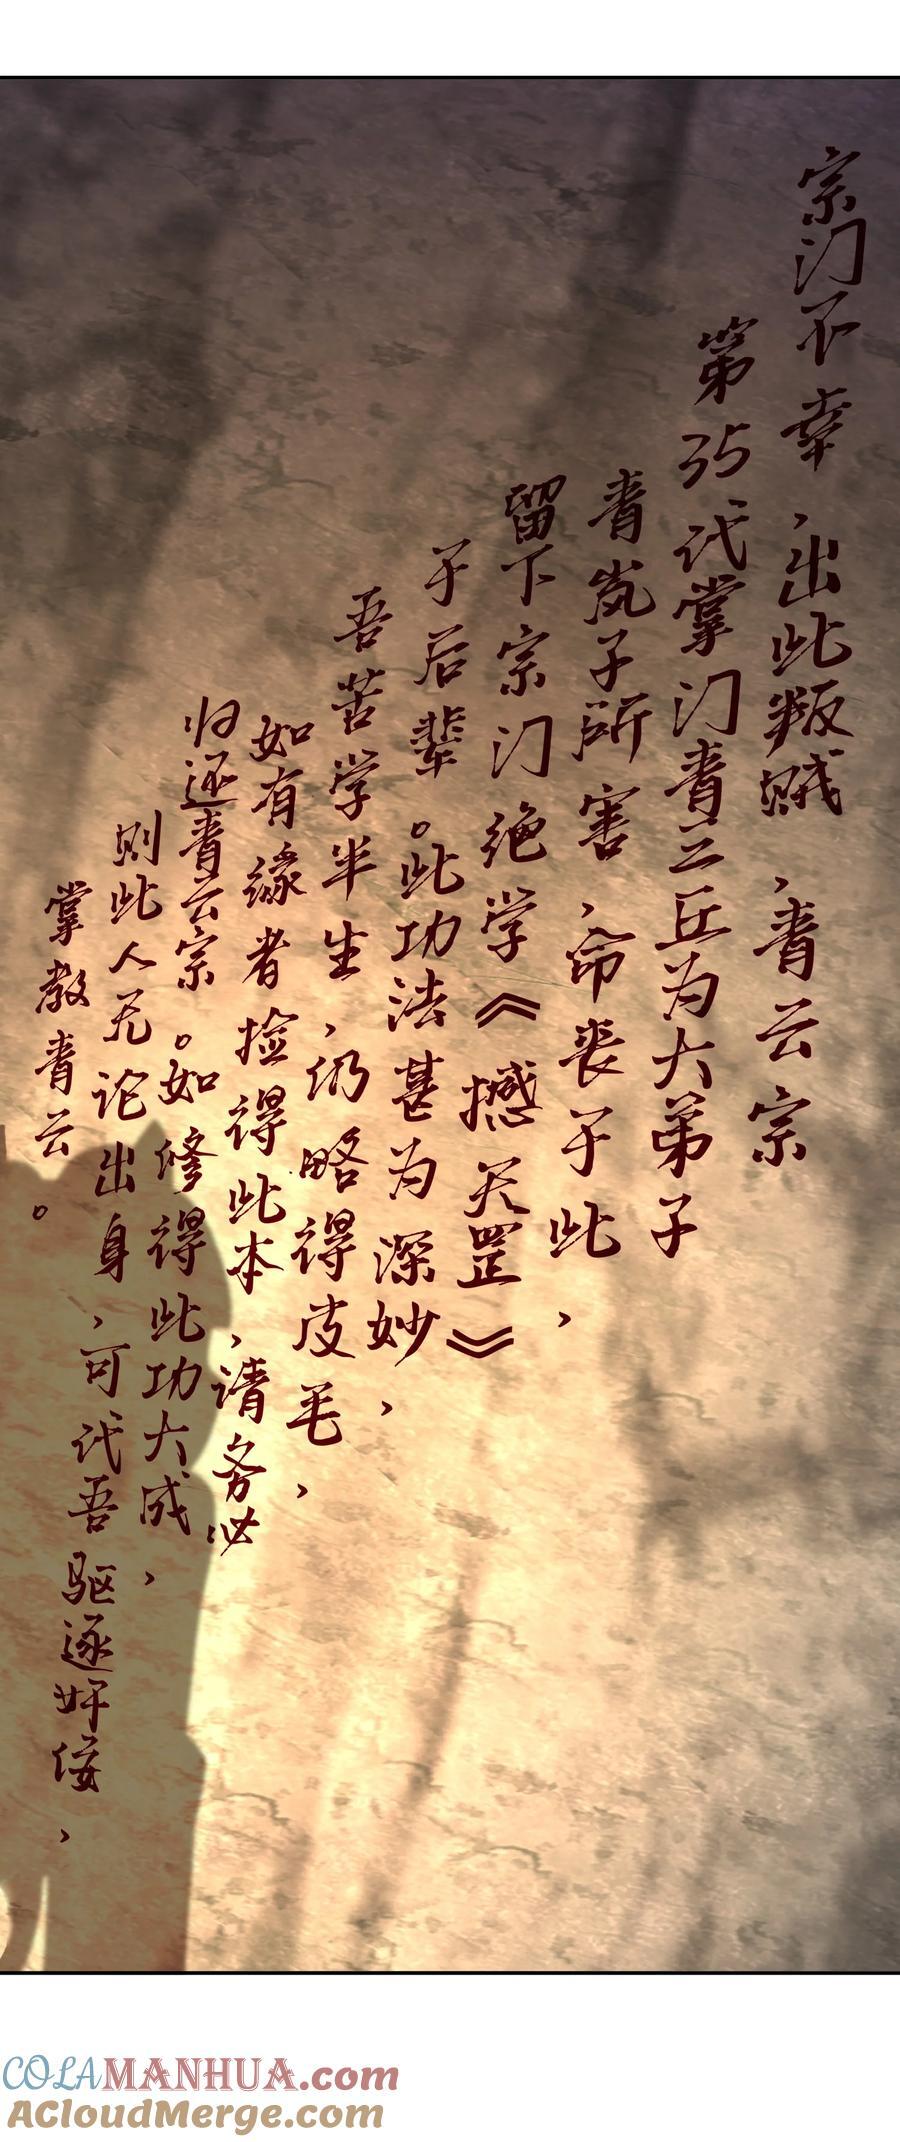 宗门不幸，出此叛贼，青云宗
第35代掌门青云丘为大弟子
青岚子所害，命丧于此，
留下宗门绝学《撼天罡》
于后辈。此功法甚为深妙，
吾苦学半生，仍略得皮毛，
如有缘者捡得此本，请务必
归还青云宗。如修得此功大成，
则此人无论出身，可代吾驱逐奸佞，
掌教青云。
COLAMANHUA.com
ACloudMerge.com